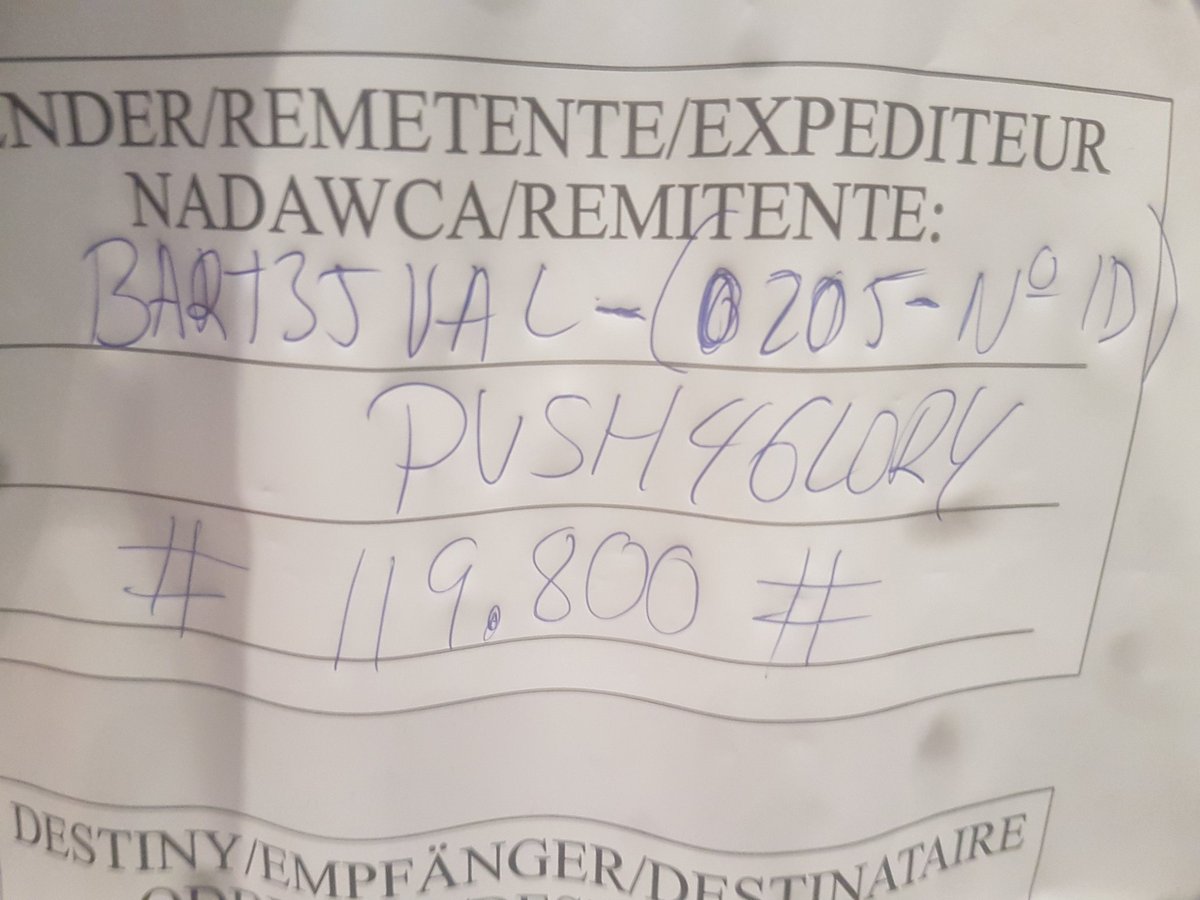 ENDER/REMETENTE/EXPEDITEUR
NADAWCA/REMITENTE:
BART35 VAL-(0205-Nº ID)
PUSH4GLORY
# 119.800 #
DESTINY/EMPFÄNGER/DESTINATAIRE